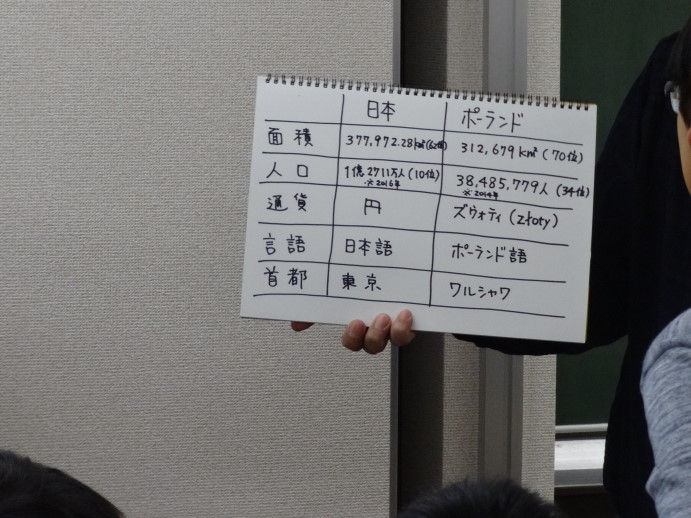 日本 ポーランド
面積 377,972.28km²(62位) 312,679km²(70位)
人口 1億2711万人(10位) 38,485,779人(34位)
※2016年 ※2014年
通貨 円 ズウォティ(złoty)
言語 日本語 ポーランド語
首都 東京 ワルシャワ